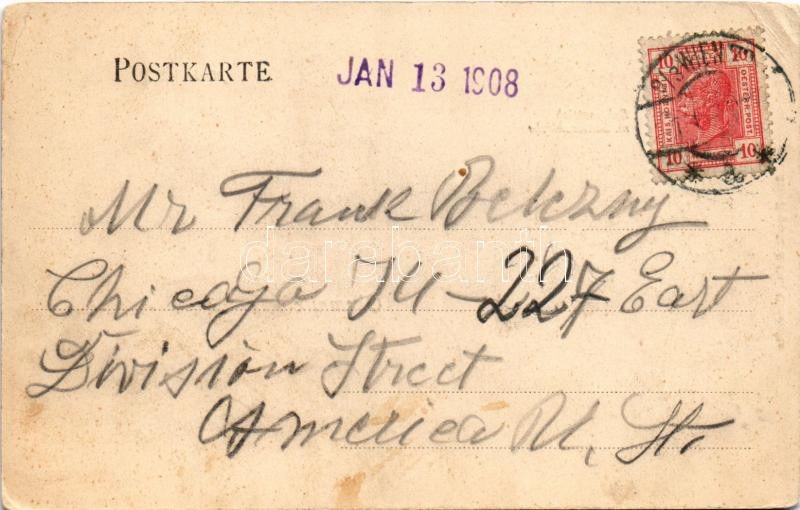 POSTKARTE
JAN 13 1908
10 10
WIEN
OESTERR. POST
10 10
Mr Frank Belezny
Chicago Ill - 227 East
Division Street
America U. St.
darabanth